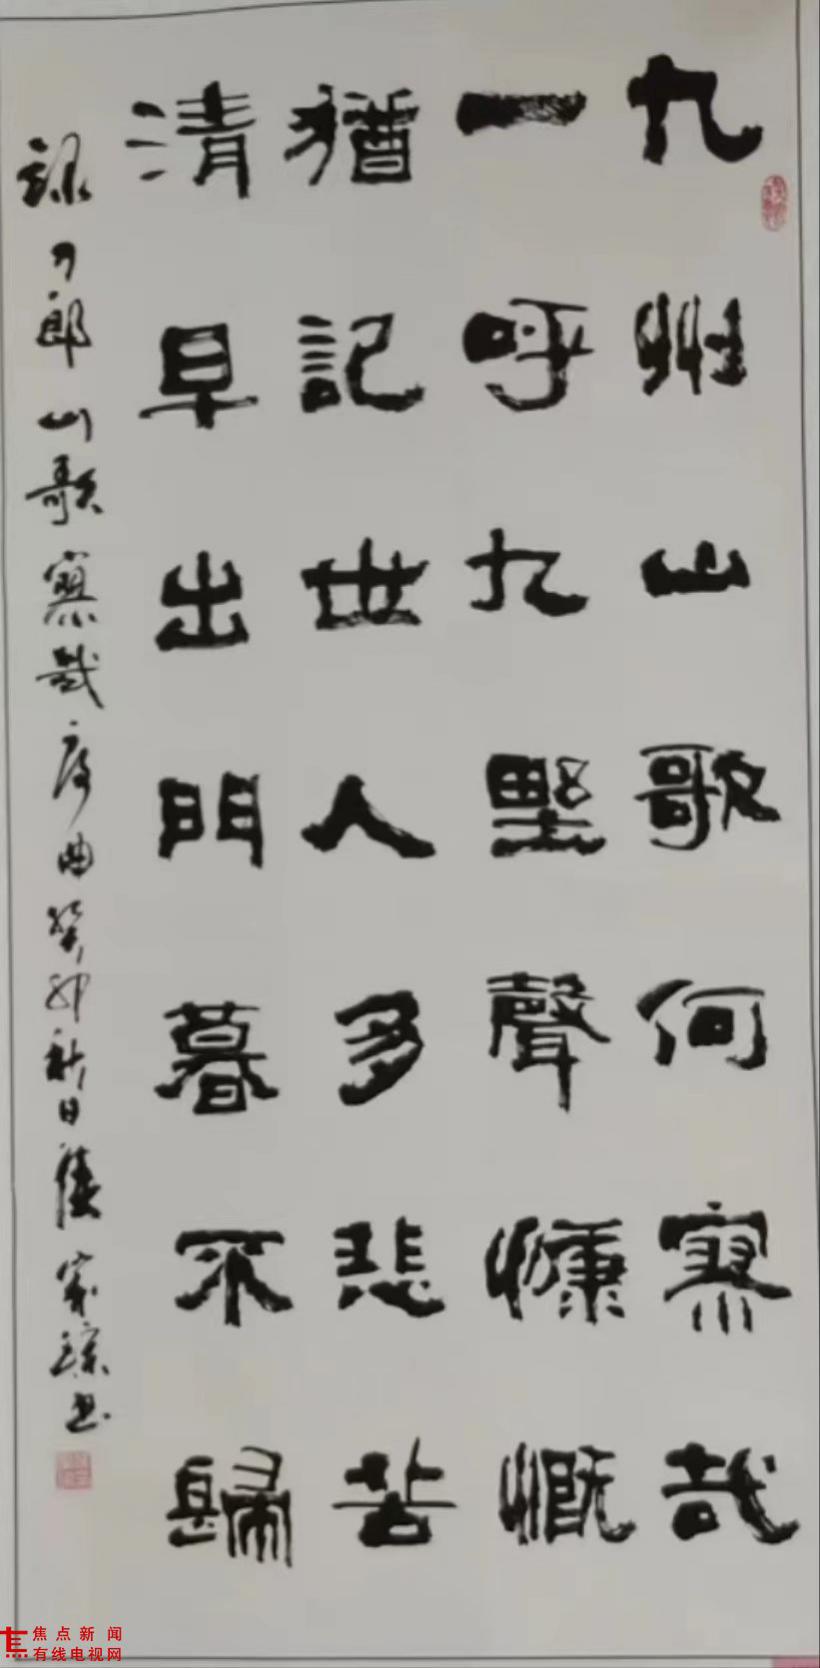 九州山歌何寥哉
一呼九野聲慷慨
猶記世人多悲苦
清早出門暮不歸
錄刀郎山歌寥哉序曲癸卯秋日家書
焦点新闻
有线电视网